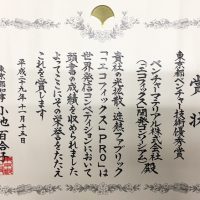 賞状
東京都ベンチャー技術優秀賞
ベンチャーマテリアル株式会社殿
(エコフィックス開発コンソーシアム)
貴社の光拡散・遮熱ファブリック
「エコフィックスPRO」は
世界発信コンペティションにおいて
頭書の成績を収められました
よってここにその栄誉をたたえ
これを賞します
平成二十九年十一月十五日
東京都知事 小池百合子